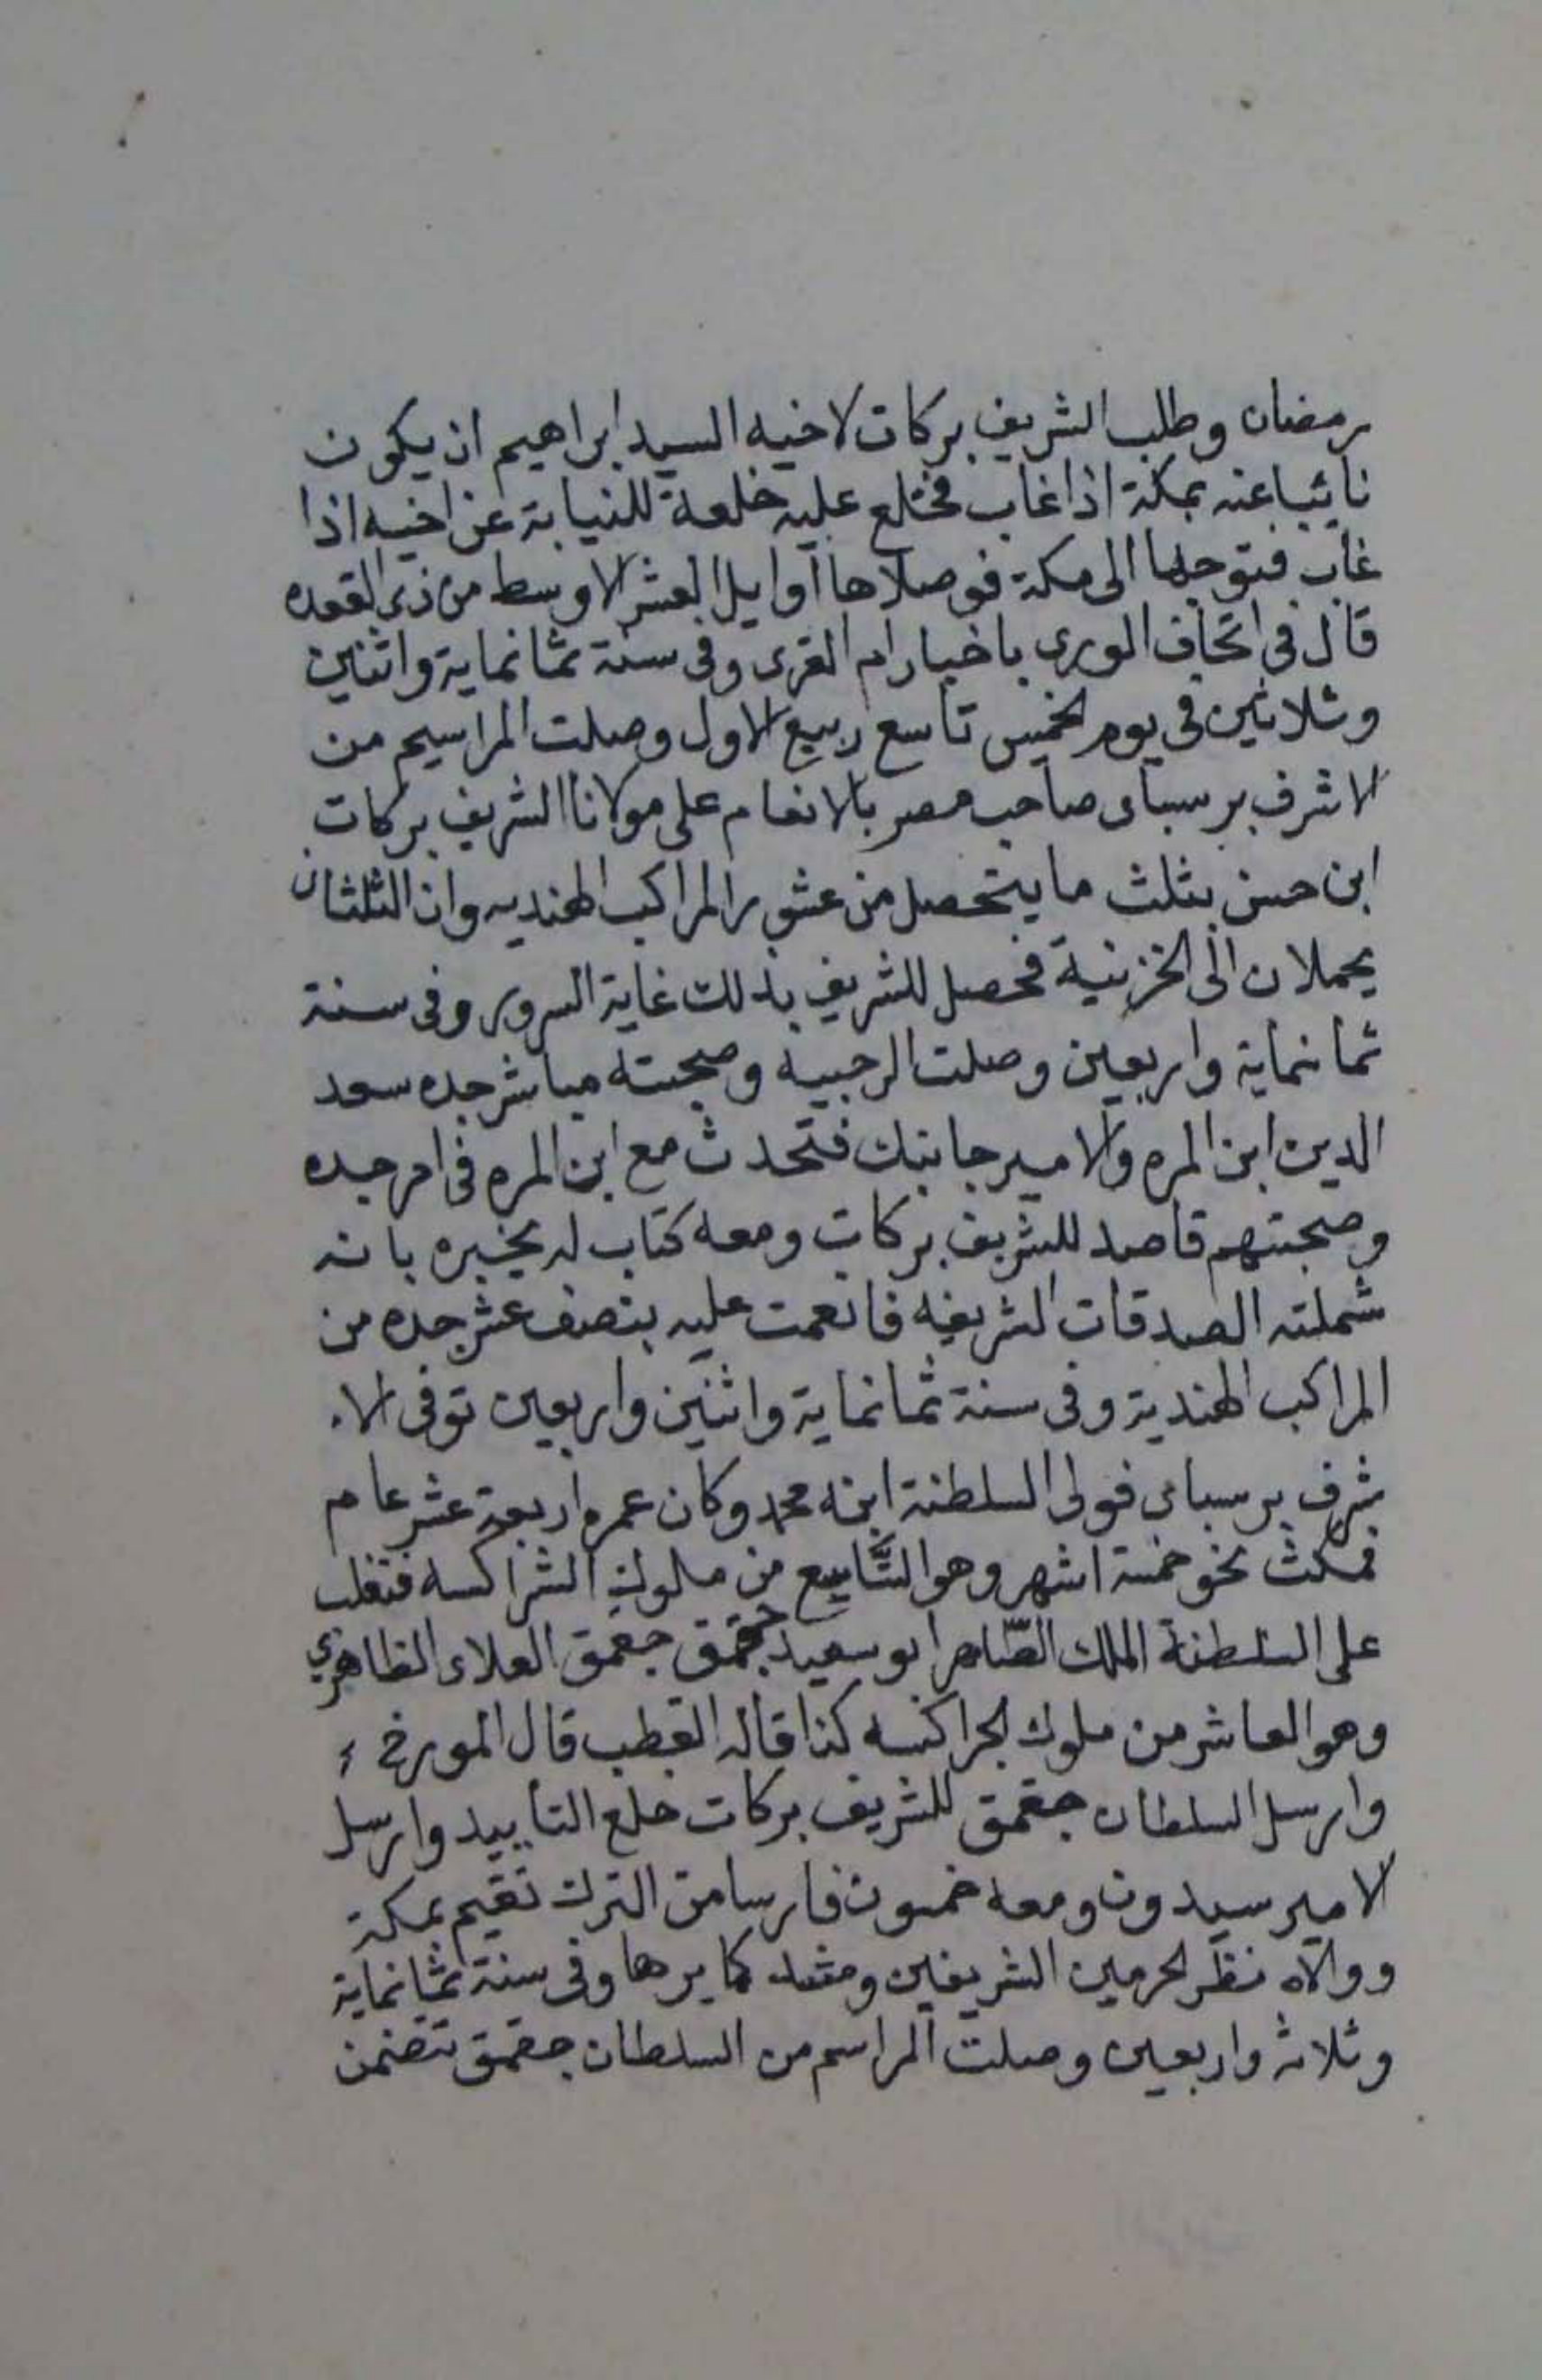 رمضان وطلب الشريف بركات لاخيه السيد ابراهيم ان يكون
نائبا عنه بمكة اذا غاب فختلع عليه خلعة للنيابة عن اخيه اذا
غاب فتوجها الى مكة فوصلاها اوايل العشر الاوسط من ذى القعده
قال فى اتحاف الورى باخبار ام القرى وفى سنة ثمانماية واثنين
وثلاثين فى يوم الخميس تاسع ربيع الاول وصلت المراسيم من
الاشرف برسباى صاحب مصر بالانعام على مولانا الشريف بركات
ابن حسن بثلث ما يتحصل من عشور المراكب الهنديه وان الثلثان
يحملان الى الخزينية فحصل للشريف بذلك غاية السرور وفى سنة
ثمانماية واربعين وصلت الرجبية وصحبته مباشر جده سعد
الدين ابن المره والامير جانبك فتحدث مع ابن المره فى امر جده
وصحبتهم قاصد للشريف بركات ومعه كتاب له يخبره بانه
شملته الصدقات الشريفه فانعمت عليه بنصف عشر جده من
المراكب الهندية وفى سنة ثمانماية واثنين واربعين توفى الا
شرف برسباى فولى السلطنة ابنه محمد وكان عمره اربعة عشر عام
فمكث نحو خمسة اشهر وهو التاسع من ملوك الشراكسه فتغلب
على السلطنة الملك الظاهر ابو سعيد جقمق جقمق العلاء الظاهري
وهو العاشر من ملوك الجراكسه كذا قاله القطب قال المورخ
وارسل السلطان جقمق للشريف بركات خلع التأييد وارسل
الامير سيدون ومعه خمسون فارسا من الترك تقيم بمكة
ووالاه نظر الحرمين الشريفين ومثله وفى سنة ثمانماية
وثلاثه واربعين وصلت المراسم من السلطان جقمق تتضمن